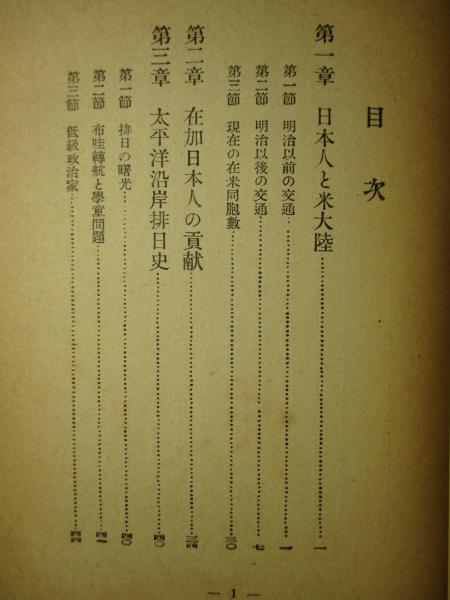 目次
第一章 日本人と米大陸……一
第一節 明治以前の交通……一
第二節 明治以後の交通……七
第三節 現在の在米同胞數……三〇
第二章 在加日本人の貢献……三四
第三章 太平洋沿岸排日史……四〇
第一節 排日の曙光……四〇
第二節 布哇轉航と學童問題……四一
第三節 低級政治家……四四
— 1 —